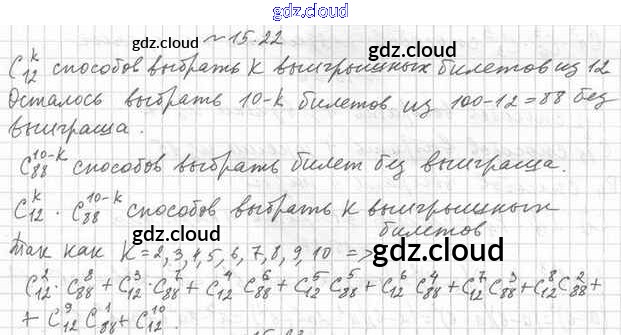 gdz.cloud
gdz.cloud № 15.22 gdz.cloud
C₁₂ᵏ способов выбрать k выигрышных билетов из 12
gdz.cloud
Осталось выбрать 10-k билетов из 100-12=88 без
выиграша.
gdz.cloud
C₈₈¹⁰⁻ᵏ способов выбрать билет без выиграша.
gdz.cloud
C₁₂ᵏ · C₈₈¹⁰⁻ᵏ способов выбрать k выигрышных
билетов
gdz.cloud
Так как k=2,3,4,5,6,7,8,9,10 =>
gdz.cloud
C₁₂² · C₈₈⁸ + C₁₂³ · C₈₈⁷ + C₁₂⁴ C₈₈⁶ + C₁₂⁵ C₈₈⁵ + C₁₂⁶ C₈₈⁴ + C₁₂⁷ C₈₈³ + C₁₂⁸ C₈₈² +
+ C₁₂⁹ C₈₈¹ + C₁₂¹⁰.